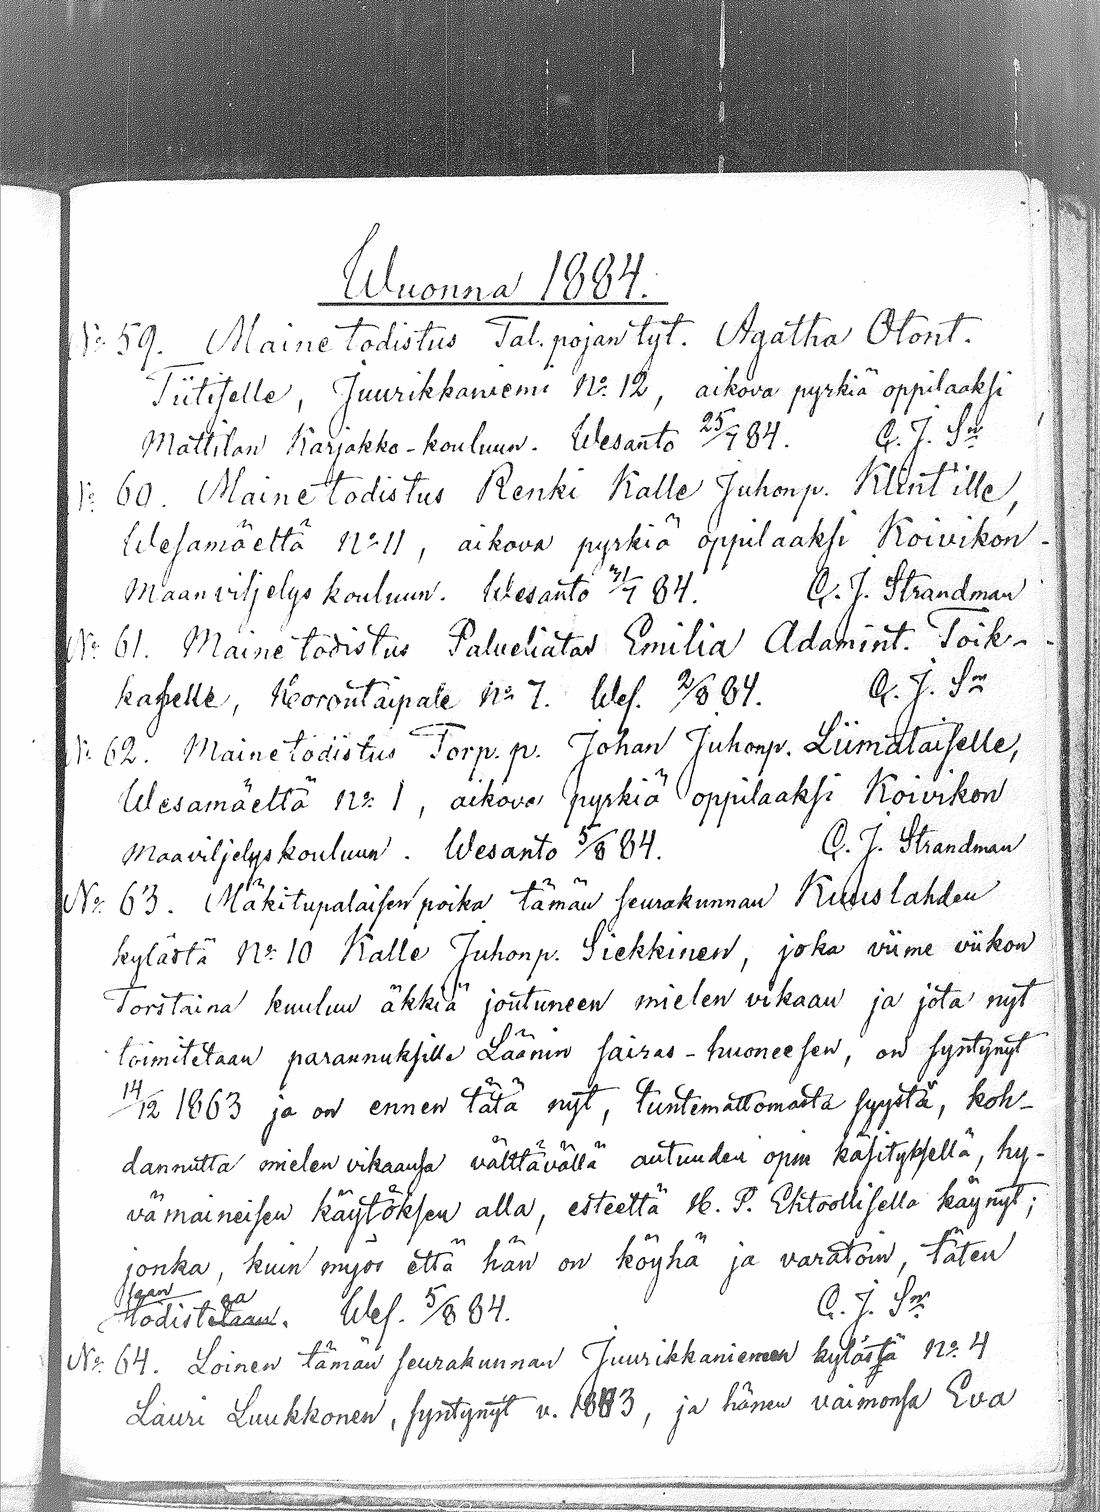 Wuonna 1884.
No 59. Mainetodistus Tal. pojan tyt. Agatha Otont.
Tiitiselle, Juurikkaniemi No 12, aikova pyrkiä oppilaaksi
Mattilan Karjakko-kouluun. Wesanto 25/7 84. C. J. Sn
No 60. Mainetodistus Renki Kalle Juhonp. Klint'ille,
Wesamäeltä No 11, aikova pyrkiä oppilaaksi Koivikon
Maanviljelyskouluun. Wesanto 31/7 84. C. J. Strandman
No 61. Mainetodistus Palveliatar Emilia Adamint. Toik-
kaselle, Korontaipale No 7. Wes. 2/8 84. C. J. Sn
No 62. Mainetodistus Torp. p. Johan Juhonp. Liimataiselle,
Wesamäeltä No 1, aikova pyrkiä oppilaaksi Koivikon
Maaviljelyskouluun. Wesanto 5/8 84. C. J. Strandman
No 63. Mäkitupalaisen poika tämän seurakunnan Kuuslahden
kylästä No 10 Kalle Juhonp. Siekkinen, joka viime viikon
Torstaina kuuluu äkkiä joutuneen mielen vikaan ja jota nyt
toimitetaan parannuksille Läänin sairas-huoneesen, on syntynyt
14/12 1863 ja on ennen tätä nyt, tuntemattomasta syystä, koh-
dannutta mielenvikaansa välttävällä autuuden opin käsityksellä, hy-
vämaineisen käytöksen alla, esteettä H. P. Ehtoollisella käynyt;
jonka, kuin myös että hän on köyhä ja varatoin, täten
todistetaan. Wes. 5/8 84. C. J. Sn
No 64. Loinen tämän seurakunnan Juurikkaniemen kylästä No 4
Lauri Luukkonen, syntynyt v. 1813, ja hänen vaimonsa Eva